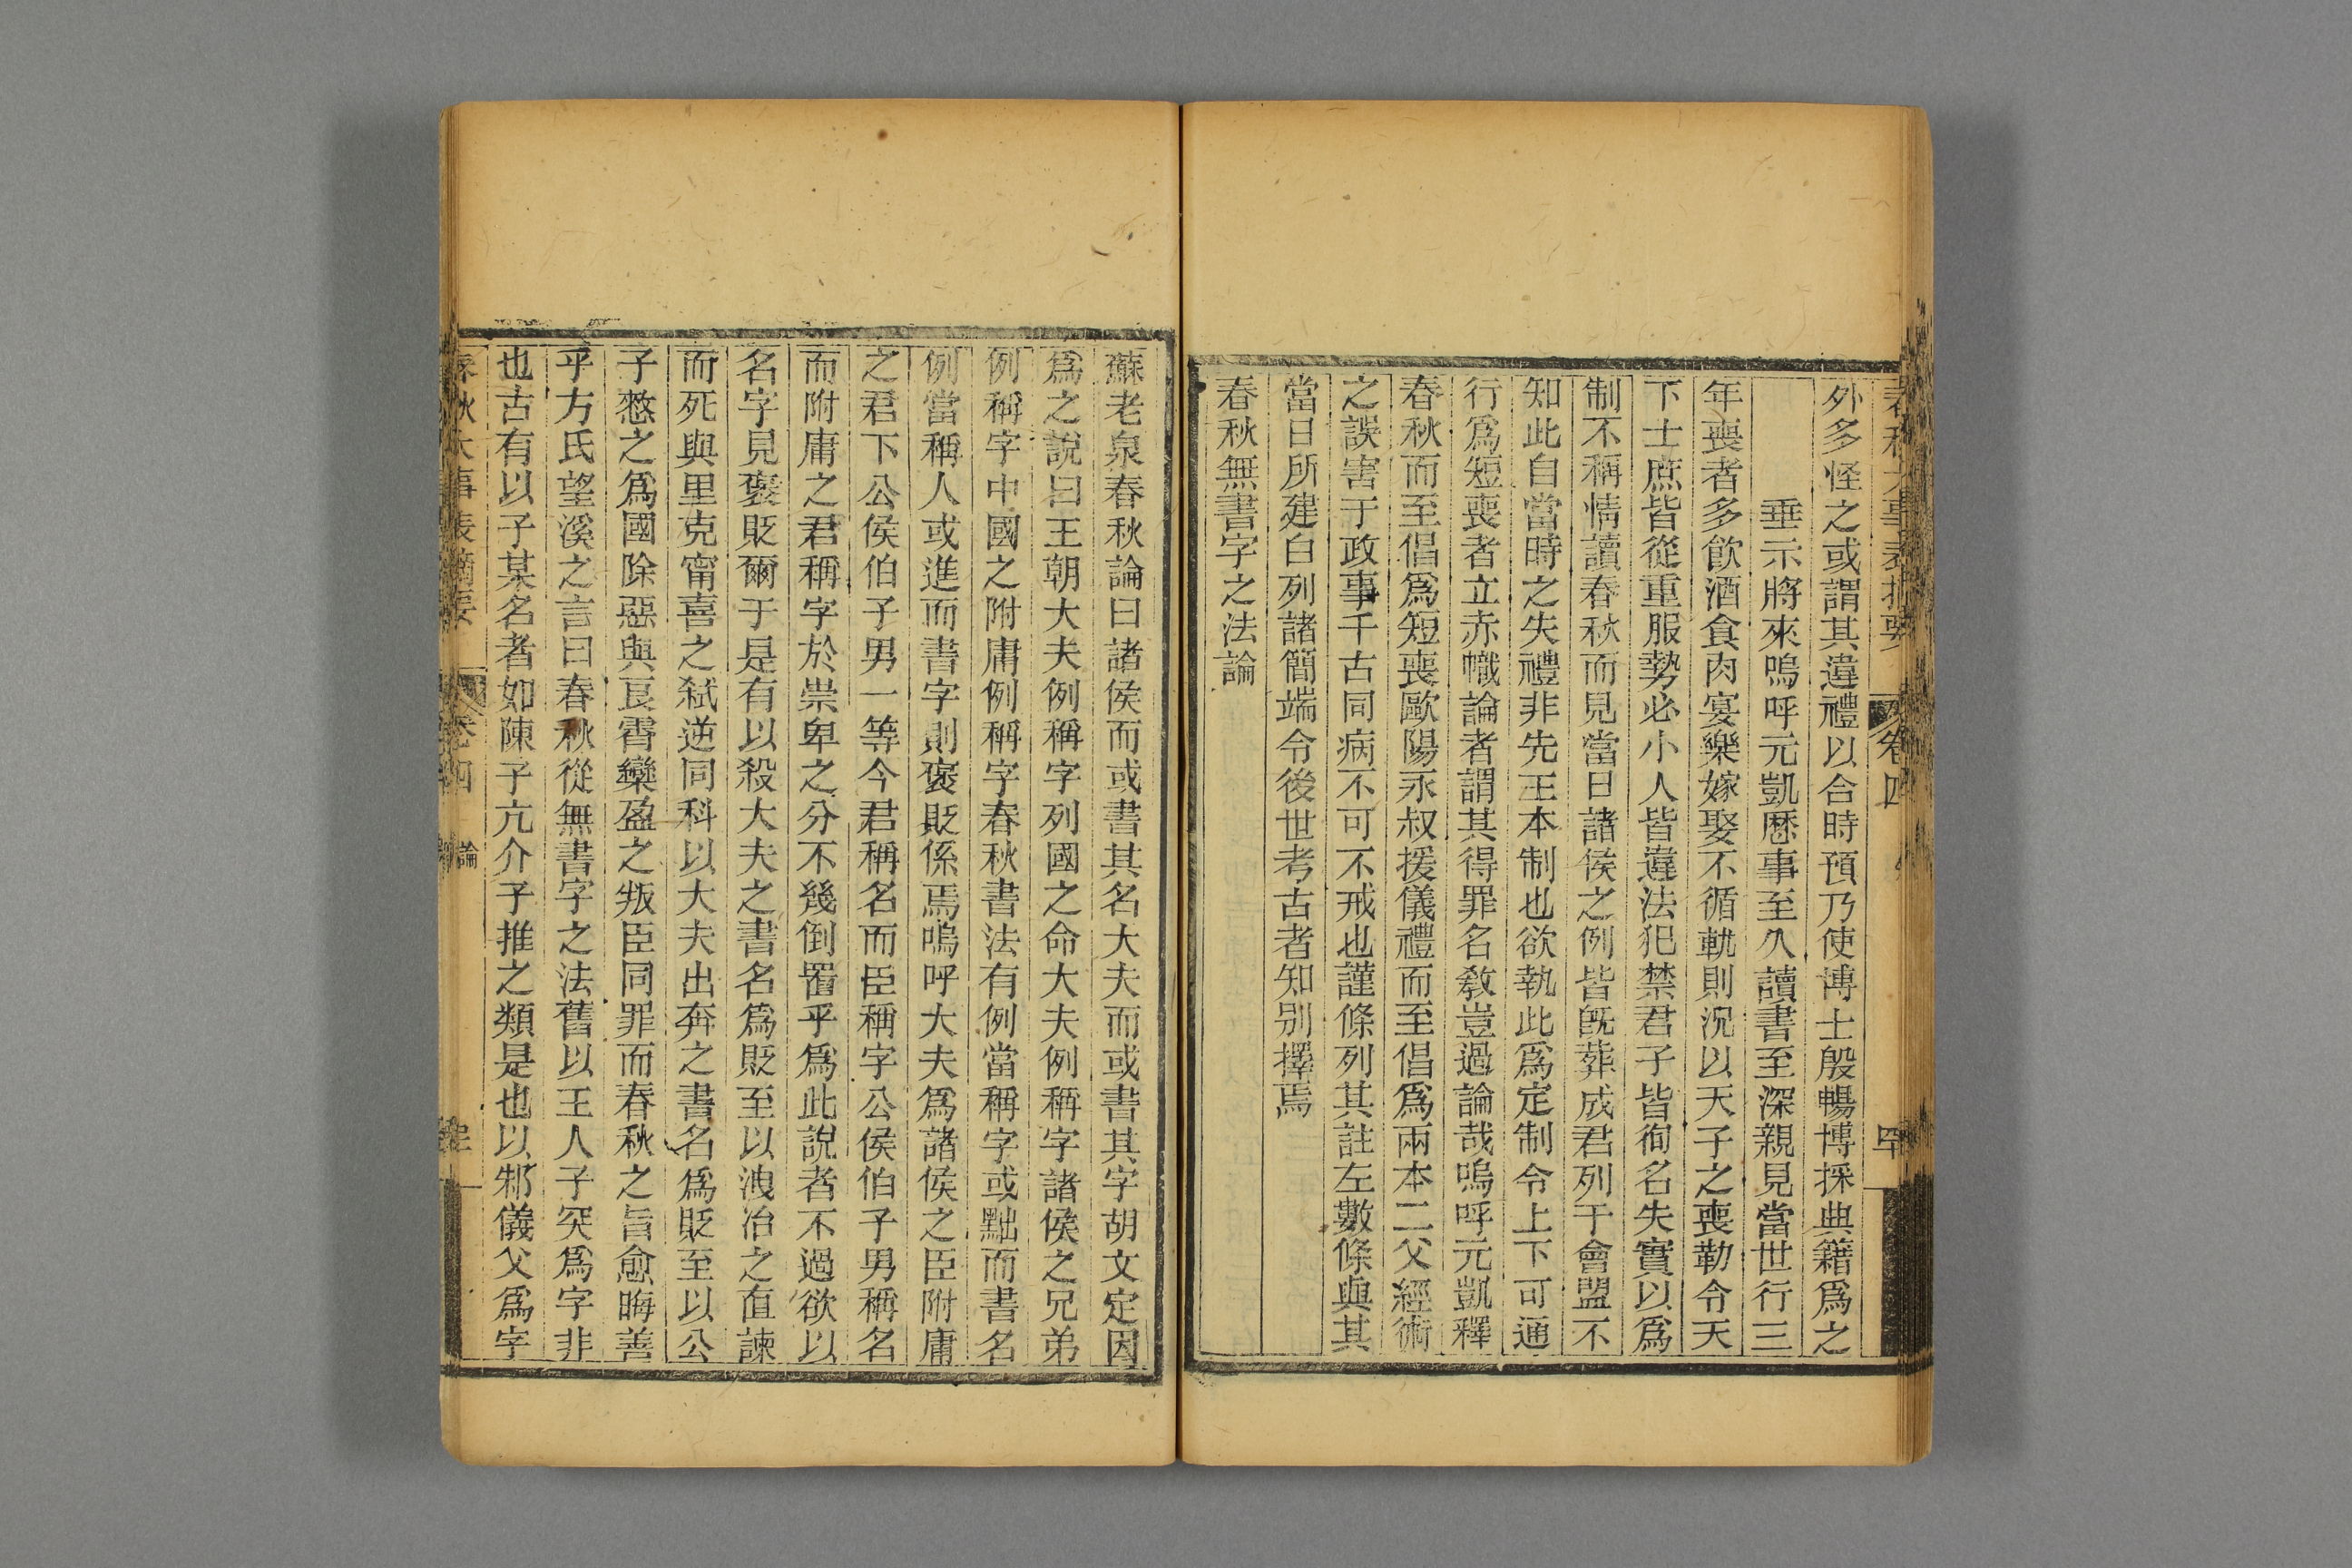 外多怪之或謂其違禮以合時預乃使博士殷暢博採典籍爲之
垂示將來嗚呼元凱歷事至久讀書至深親見當世行三
年喪者多飲酒食肉宴樂嫁娶不循軌則況以天子之喪勒令天
下士庶皆從重服勢必小人皆違法犯禁君子皆徇名失實以爲
制不稱情讀春秋而見當日諸侯之例皆旣葬成君列于會盟不
知此自當時之失禮非先王本制也欲執此爲定制令上下可通
行爲短喪者立赤幟論者謂其得罪名敎豈過論哉嗚呼元凱釋
春秋而至倡爲短喪歐陽永叔援儀禮而至倡爲兩本二父經術
之誤害于政事千古同病不可不戒也謹條列其註左數條與其
當日所建白列諸簡端令後世考古者知別擇焉
春秋無書字之法論
蘇老泉春秋論曰諸侯而或書其名大夫而或書其字胡文定因
爲之說曰王朝大夫例稱字列國之命大夫例稱字諸侯之兄弟
例稱字中國之附庸例稱字春秋書法有例當稱字或黜而書名
例當稱人或進而書字則褒貶係焉嗚呼大夫爲諸侯之臣附庸
之君下公侯伯子男一等今君稱名而臣稱字公侯伯子男稱名
而附庸之君稱字於崇卑之分不幾倒置乎爲此說者不過欲以
名字見褒貶爾于是有以殺大夫之書名爲貶至以洩冶之直諫
而死與里克甯喜之弑逆同科以大夫出奔之書名爲貶至以公
子憖之爲國除惡與良霄欒盈之叛臣同罪而春秋之旨愈晦善
乎方氏望溪之言曰春秋從無書字之法舊以王人子突爲字非
也古有以子某名者如陳子亢介子推之類是也以邾儀父爲字
春秋大事表摘要 卷四 論